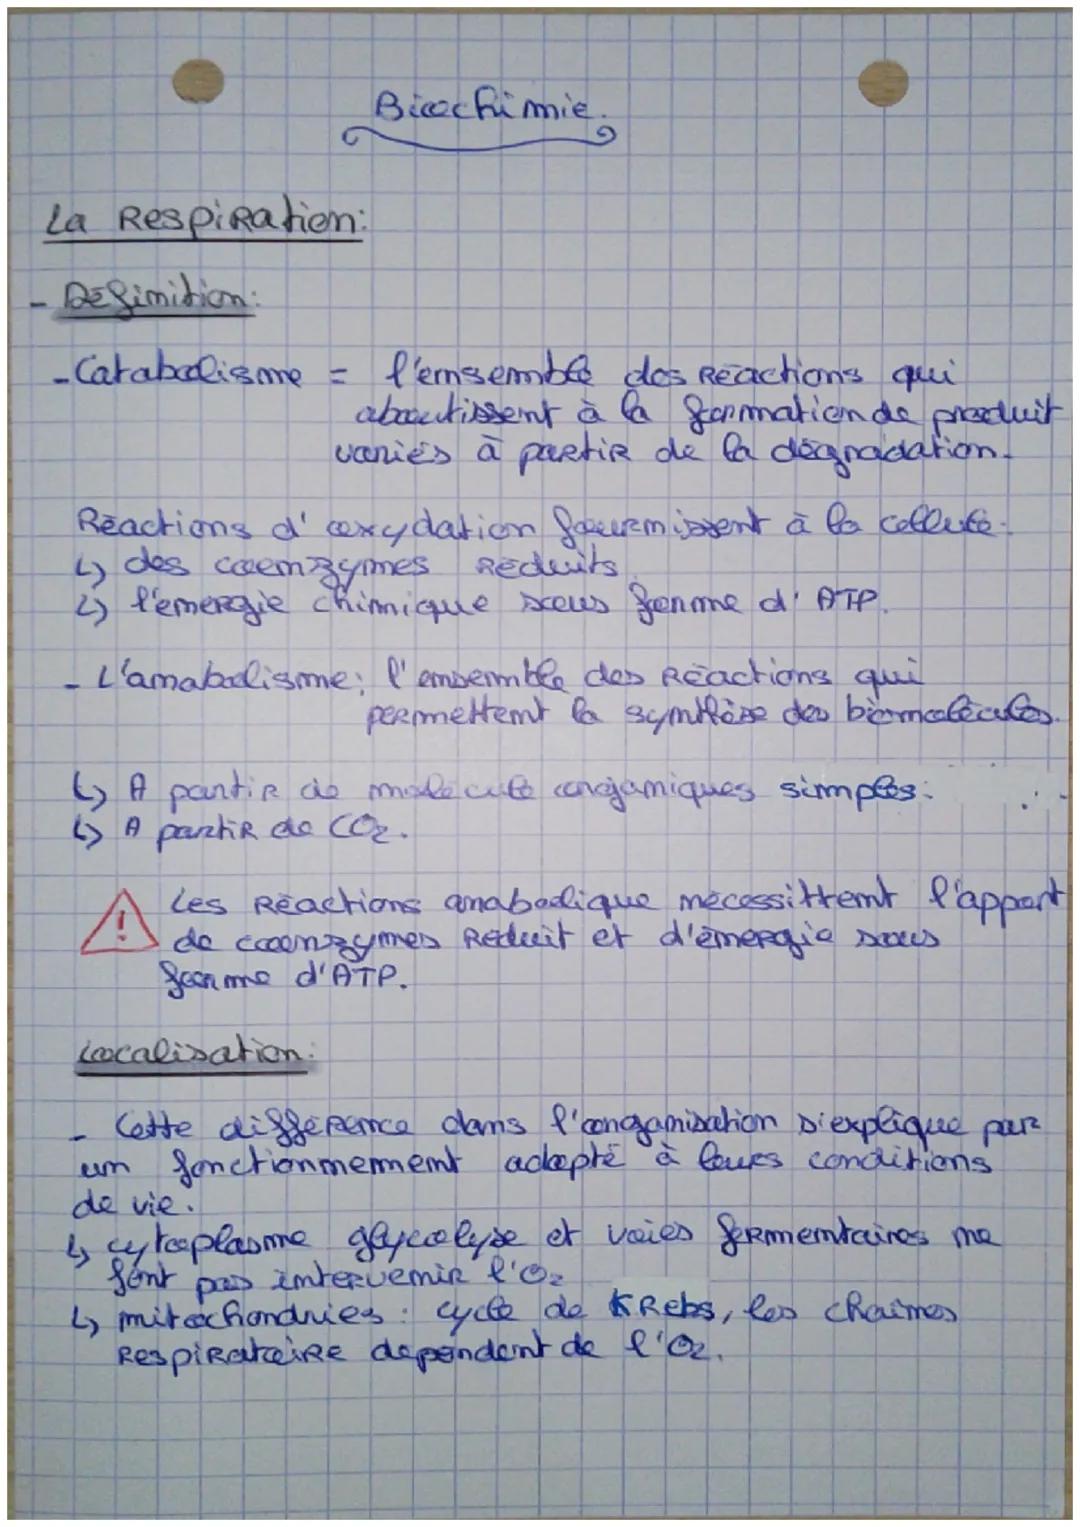 Biochimie.
La Respiration:
- Définition:
- Catabolisme = l'ensemble des Réactions qui
aboutissent à la formation de produit
variés à partir de la dégradation.
Réactions d'oxydation fournissent à la cellule.
↳ des coenzymes Réduits
↳ l'énergie chimique sous forme d'ATP.
- L'anabolisme: l'ensemble des Réactions qui
permettent la synthèse des biomolécules.
↳ A partir de molécule organiques simples.
↳ A partir de CO2.
! Les Réactions anabolique nécessittent l'apport
de coenzymes Réduit et d'énergie sous
forme d'ATP.
Localisation:
- Cette différence dans l'organisation s'explique par
un fonctionnement adapté à leurs conditions
de vie.
↳ cytoplasme glycolyse et voies fermentaires ne
font pas intervenir l'O2
↳ mitochondries: cycle de KRebs, les chaînes
Respiratoire dépendent de l'O2.